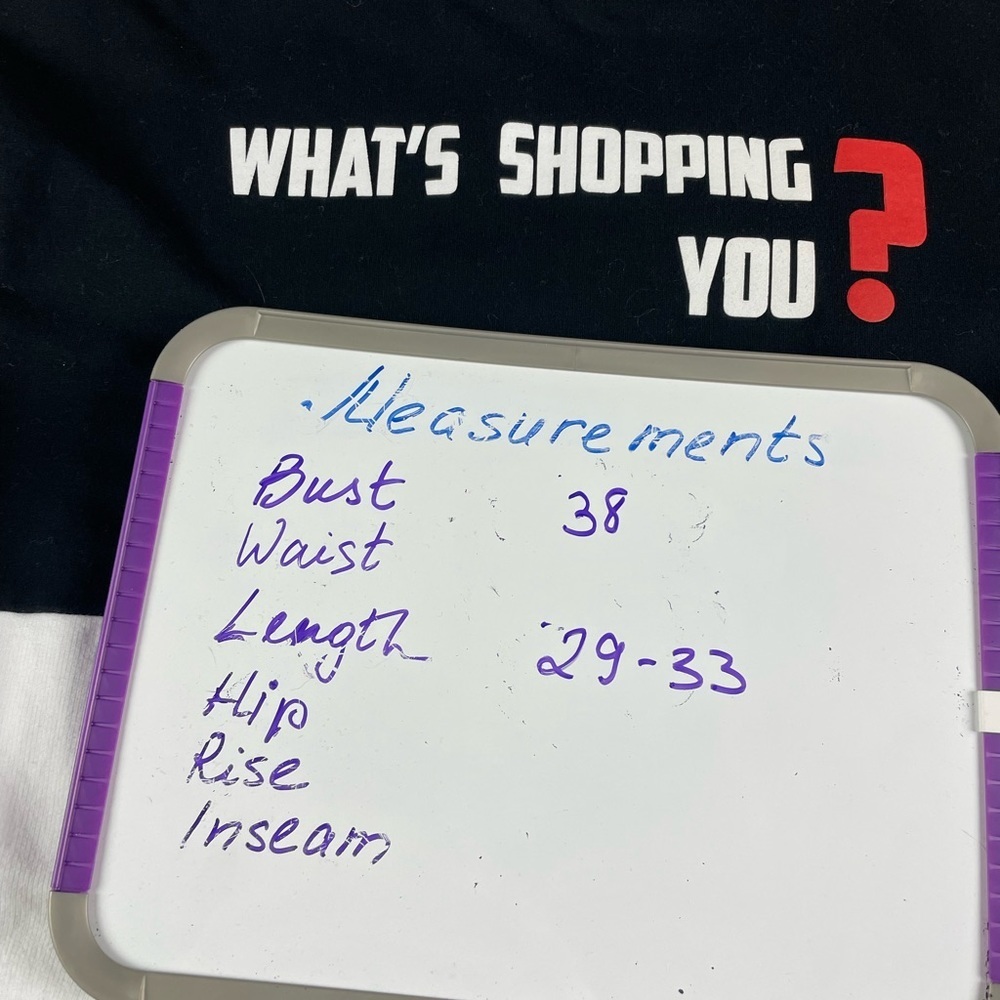 WHAT'S SHOPPING
YOU?
Measurements
Bust 38
Waist
Length 29-33
Hip
Rise
Inseam